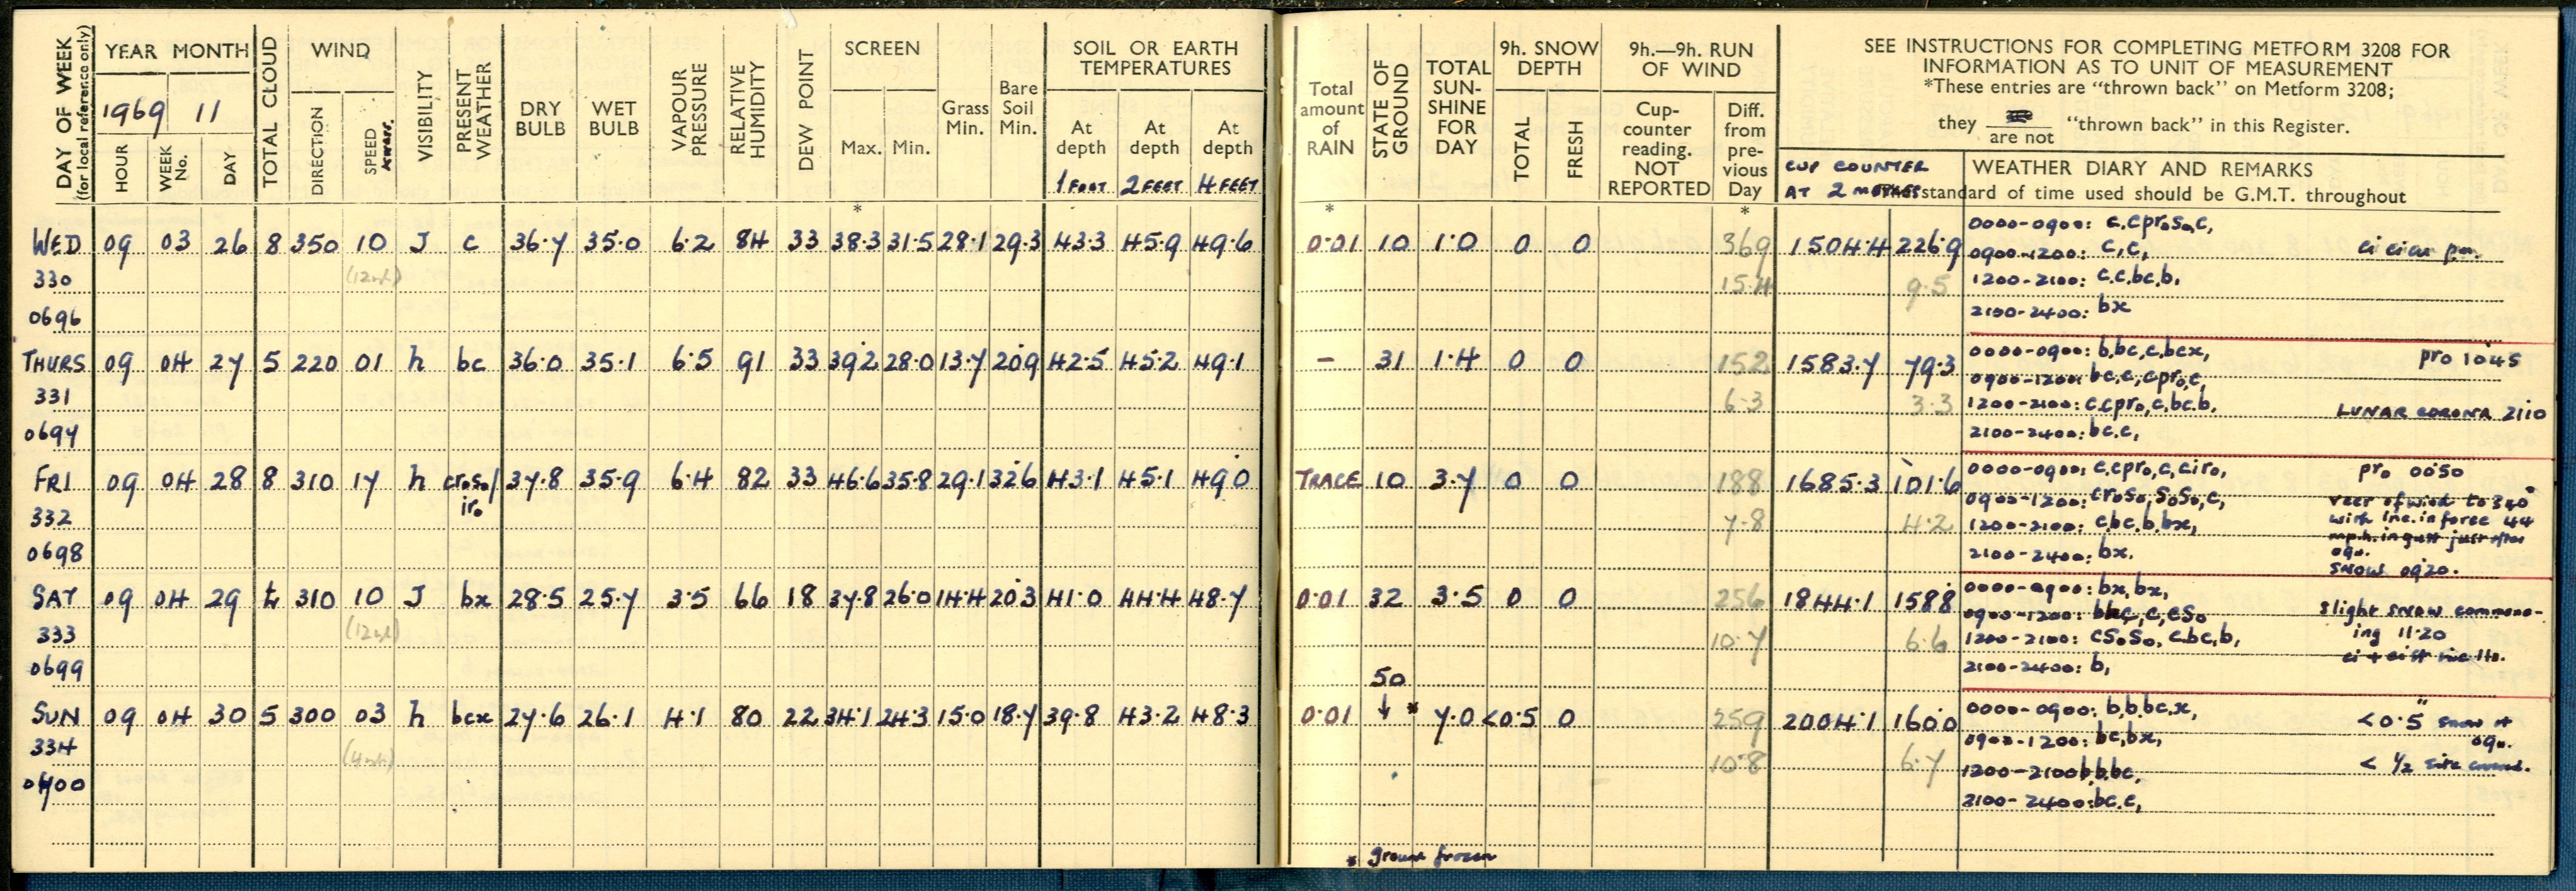 DAY OF WEEK (for local reference only) YEAR MONTH TOTAL CLOUD WIND VISIBILITY PRESENT WEATHER DRY BULB WET BULB VAPOUR PRESSURE RELATIVE HUMIDITY DEW POINT SCREEN Grass Min. Bare Soil Min. SOIL OR EARTH TEMPERATURES
1969 11
HOUR WEEK No. DAY DIRECTION SPEED KNOTS. Max. Min. At depth At depth At depth
1 FOOT 2 FEET 4 FEET
*
WED 09 03 26 8 350 10 J c 36.7 35.0 6.2 84 33 38.3 31.5 28.1 29.3 43.3 45.9 49.6
330
0696
THURS 09 04 27 5 220 01 h bc 36.0 35.1 6.5 91 33 39.2 28.0 13.7 20.9 42.5 45.2 49.1
331
0697
FRI 09 04 28 8 310 17 h cr₀s₀/ 37.8 35.9 6.4 82 33 46.6 35.8 29.1 32.6 43.1 45.1 49.0
ir₀
332
0698
SAT 09 04 29 310 10 J bx 28.5 25.7 3.5 66 18 37.8 26.0 14.4 20.3 41.0 44.4 48.7
333
0699
SUN 09 04 30 5 300 03 h bcx 27.6 26.1 4.1 80 22 34.1 24.3 15.0 18.7 39.8 43.2 48.3
334
0700
Total amount of RAIN STATE OF GROUND TOTAL SUN-SHINE FOR DAY 9h. SNOW DEPTH 9h.—9h. RUN OF WIND
TOTAL FRESH Cup-counter reading. NOT REPORTED Diff. from pre-vious Day
SEE INSTRUCTIONS FOR COMPLETING METFORM 3208 FOR
INFORMATION AS TO UNIT OF MEASUREMENT
*These entries are "thrown back" on Metform 3208;
they are not "thrown back" in this Register.
CUP COUNTER WEATHER DIARY AND REMARKS
AT 2 METRES standard of time used should be G.M.T. throughout
* *
0.01 10 1.0 0 0 369 1504.4 226.9 0000-0900: c,cpr₀s₀,c,
0900-1200: c,c,
15.4 9.5 1200-2100: c.c.bc,b,
2100-2400: bx
- 31 1.4 0 0 152 1583.7 79.3 0000-0900: b,bc,c,bcx, pr₀ 1045
0900-1200: bc,c,cpr₀,c,
6.3 3.3 1200-2100: c,cpr₀,c,bc,b, LUNAR CORONA 2110
2100-2400: bc,c,
TRACE 10 3.7 0 0 188 1685.3 101.6 0000-0900: c,cpr₀,c,cir₀, pr₀ 0050
0900-1200: cr₀s₀,s₀s₀,c, veer of wind to 340°
7.8 4.2 1200-2100: c,bc,b,bx, with inc. in force 44
m.p.h. in gust just after
2100-2400: bx. 09h.
SNOW 0920.
0.01 32 3.5 0 0 256 1844.1 158.8 0000-0900: bx,bx,
0900-1200: bbc,c,cs₀ slight snow commenc-
10.7 6.6 1200-2100: cs₀s₀,c,bc,b, ing 11.20
2100-2400: b,
50
0.01 ↓ * 7.0 <0.5 0 259 2004.1 160.0 0000-0900: b,b,bc,x, <0.5" snow at
0900-1200: bc,bx, 09h.
10.8 6.7 1200-2100 b,b,bc, < ½ site covered.
2100-2400: bc.c,
* ground frozen